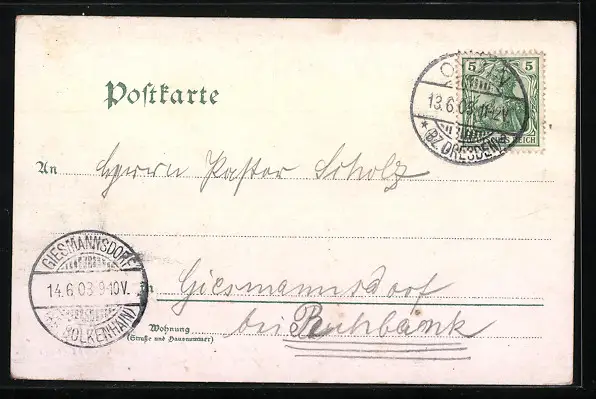 5 5
REICH
13.6.03. 11-12V.
* (BZ. DRESDEN) *
Postkarte
An Herrn Pastor Scholz
GIESMANNSDORF
14.6.03 9-10V.
(BZ. BOLKENHAIN)
in Giesmannsdorf
Wohnung
(Straße und Hausnummer)
bei Ruhbank